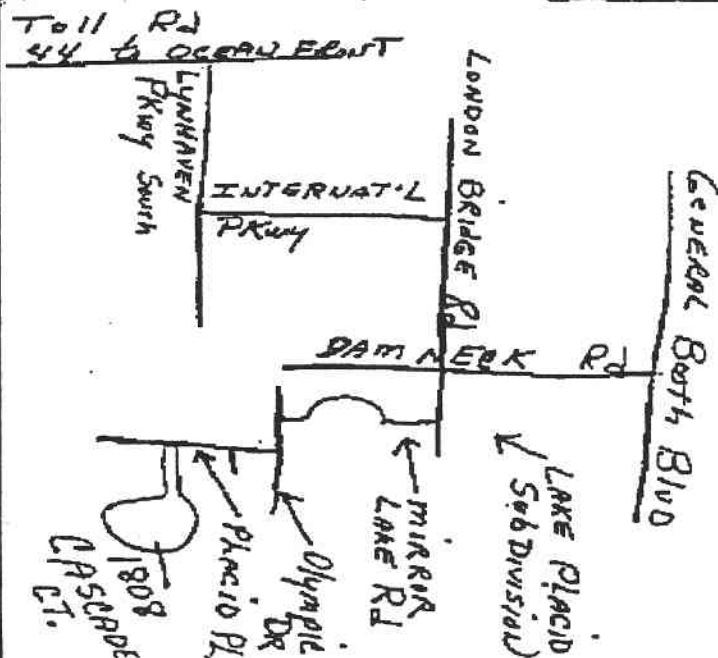 Toll Rd
44 to OCEAN FRONT
LYNNHAVEN
PKwy South
INTERNAT'L
PKwy
LONDON BRIDGE Rd
GENERAL Booth Blvd
DAM NECK Rd
LAKE PLACID
SubDivision)
MIRROR
LAKE Rd
Olympic
DR
PLACID PL
1808
CASCADE
CT.